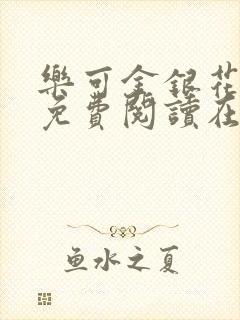 樂可金銀花
免費閱讀在
鱼水之夏